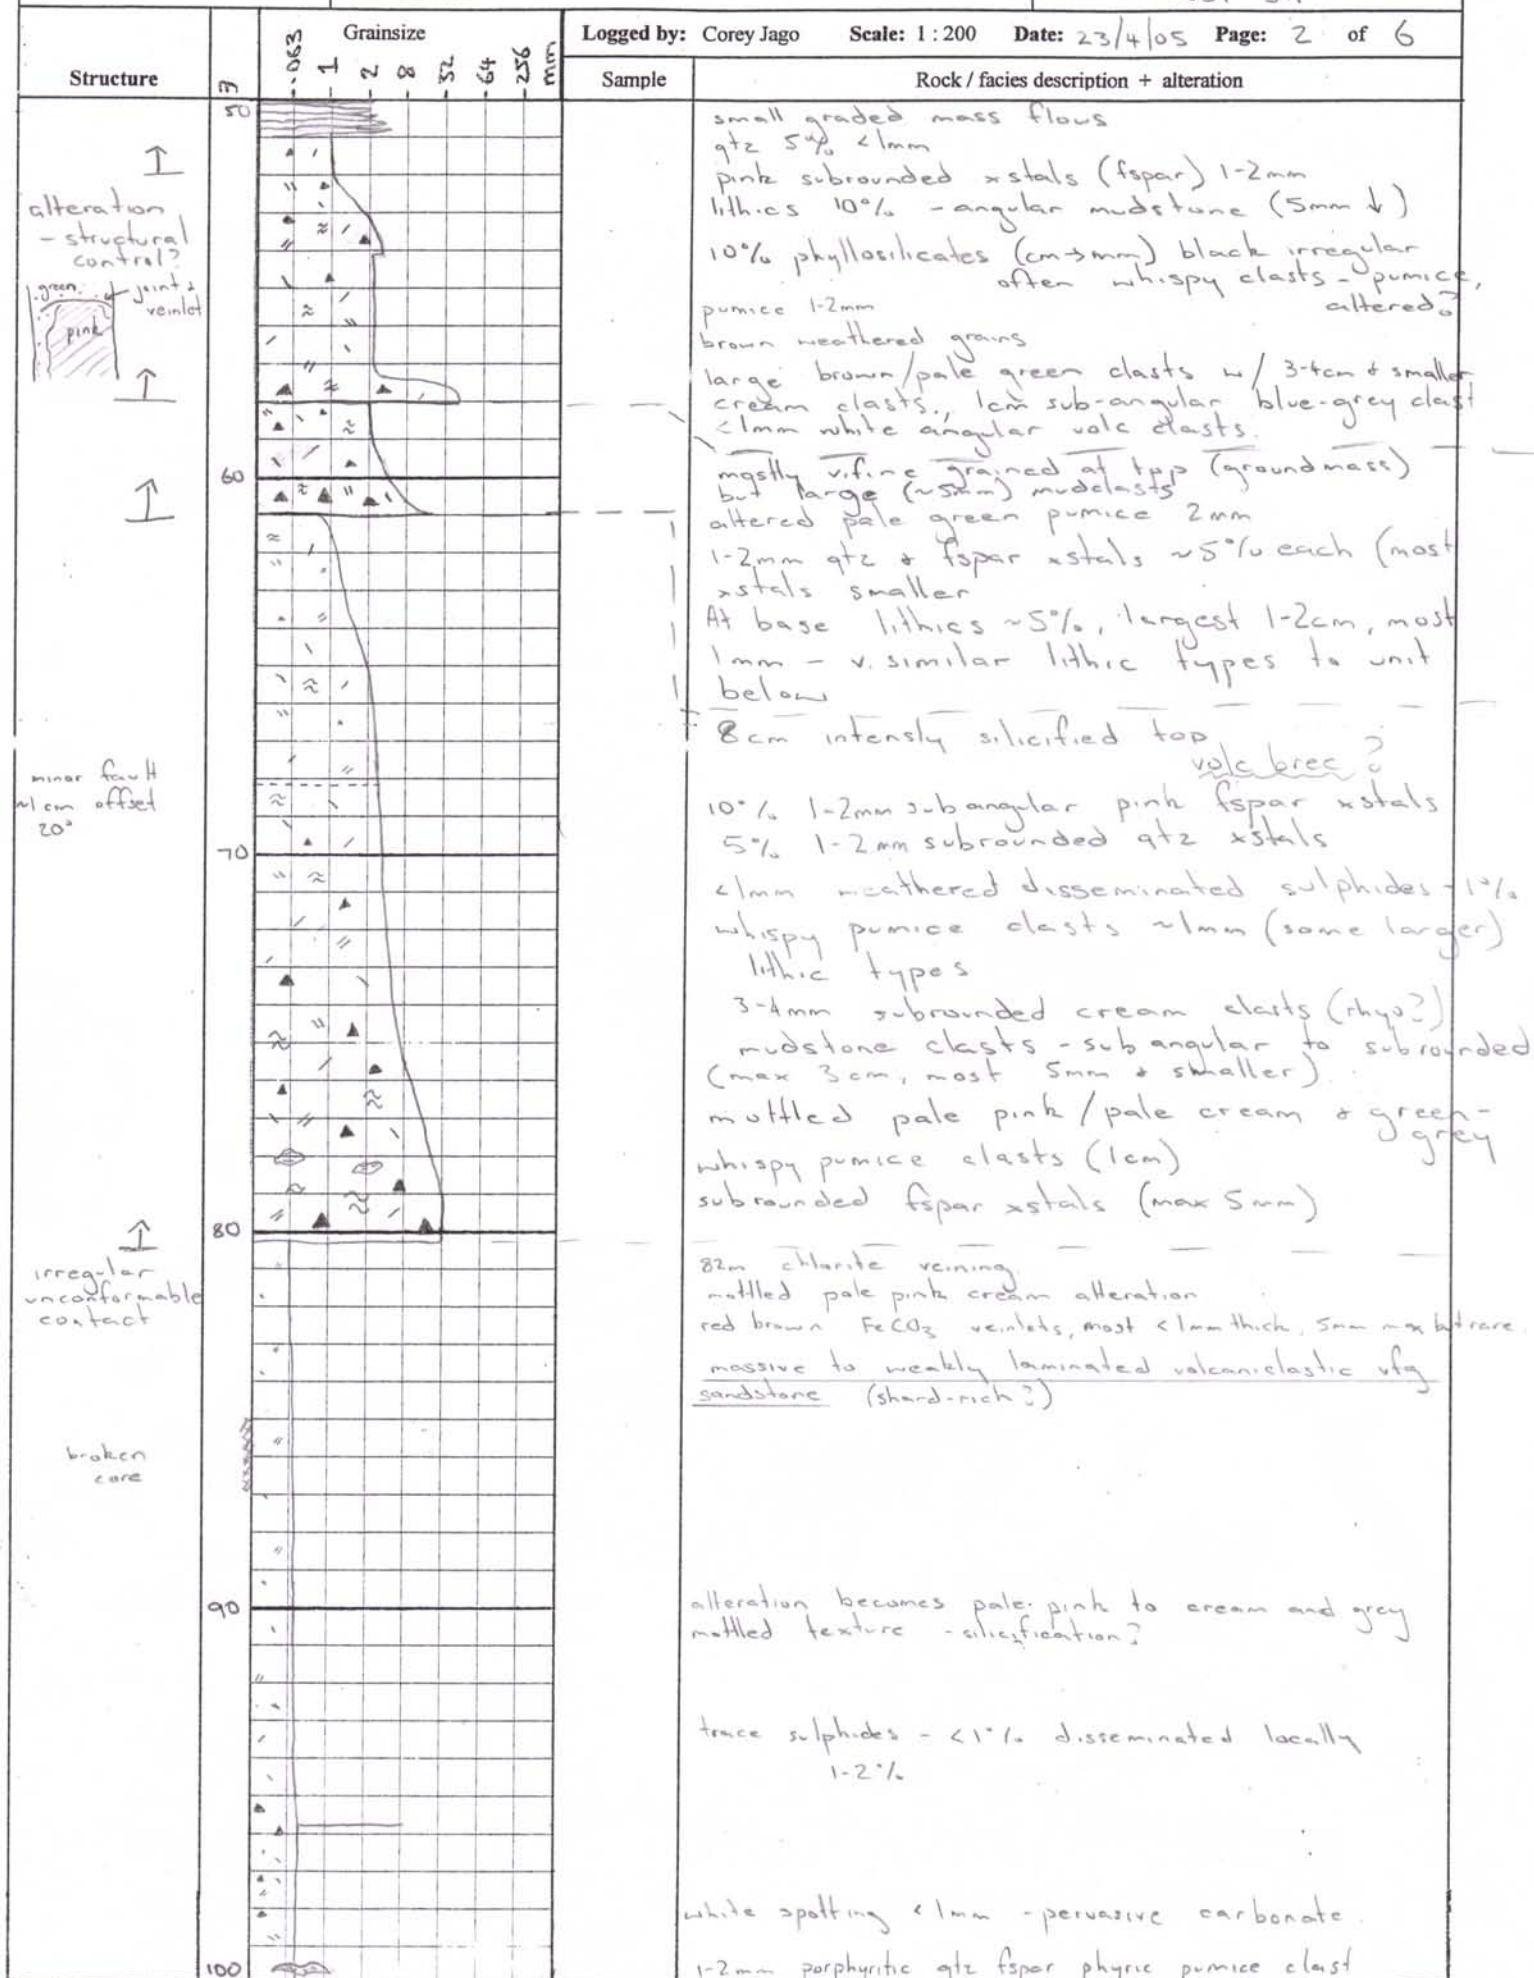 Structure
m
Grainsize
.063 1 2 8 32 64 256 mm
Logged by: Corey Jago Scale: 1 : 200 Date: 23/4/05 Page: 2 of 6
Sample
Rock / facies description + alteration
50
60
70
80
90
100
alteration
- structural
control?
green
joint &
veinlet
pink
minor fault
~1 cm offset
20°
irregular
unconformable
contact
broken
core
small graded mass flows
qtz 5% <1mm
pink subrounded xstals (fspar) 1-2mm
lithics 10% - angular mudstone (5mm ↓)
10% phyllosilicates (cm→mm) black irregular
often whispy clasts - pumice,
altered?
pumice 1-2mm
brown weathered grains
large brown/pale green clasts w/ 3-4cm & smaller
cream clasts, 1cm sub-angular blue-grey clast
<1mm white angular volc clasts.
mostly v.fine grained at top (groundmass)
but large (~5mm) mudclasts
altered pale green pumice 2mm
1-2mm qtz & fspar xstals ~5% each (most
xstals smaller
At base lithics ~5%, largest 1-2cm, most
1mm - v. similar lithic types to unit
below
8cm intensly silicified top
volc brec ?
10% 1-2mm subangular pink fspar xstals
5% 1-2mm subrounded qtz xstals
<1mm weathered disseminated sulphides - 1%
whispy pumice clasts ~1mm (some larger)
lithic types
3-4mm subrounded cream clasts (rhyo?)
mudstone clasts - subangular to subrounded
(max 3cm, most 5mm & smaller)
mottled pale pink/pale cream & green-
grey
whispy pumice clasts (1cm)
subrounded fspar xstals (max 5mm)
82m chlorite veining
mottled pale pink cream alteration
red brown FeCO3 veinlets, most <1mm thick, 5mm max but rare
massive to weakly laminated volcaniclastic vfg
sandstone (shard-rich?)
alteration becomes pale pink to cream and grey
mottled texture - silicification?
trace sulphides - <1% disseminated locally
1-2%
white spotting <1mm - pervasive carbonate
1-2mm porphyritic qtz fspar phyric pumice clast